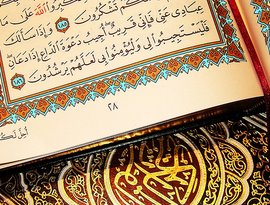 كَبِّرُوا۟ ٱللَّهَ عَلَىٰ مَا
تَشْكُرُونَ ١٨٥ وَإِذَا سَأَلَكَ
عِبَادِى عَنِّى فَإِنِّى قَرِيبٌ أُجِيبُ دَعْوَةَ ٱلدَّاعِ إِذَا دَعَانِ
فَلْيَسْتَجِيبُوا۟ لِى وَلْيُؤْمِنُوا۟ بِى لَعَلَّهُمْ يَرْشُدُونَ ١٨٦
٢٨